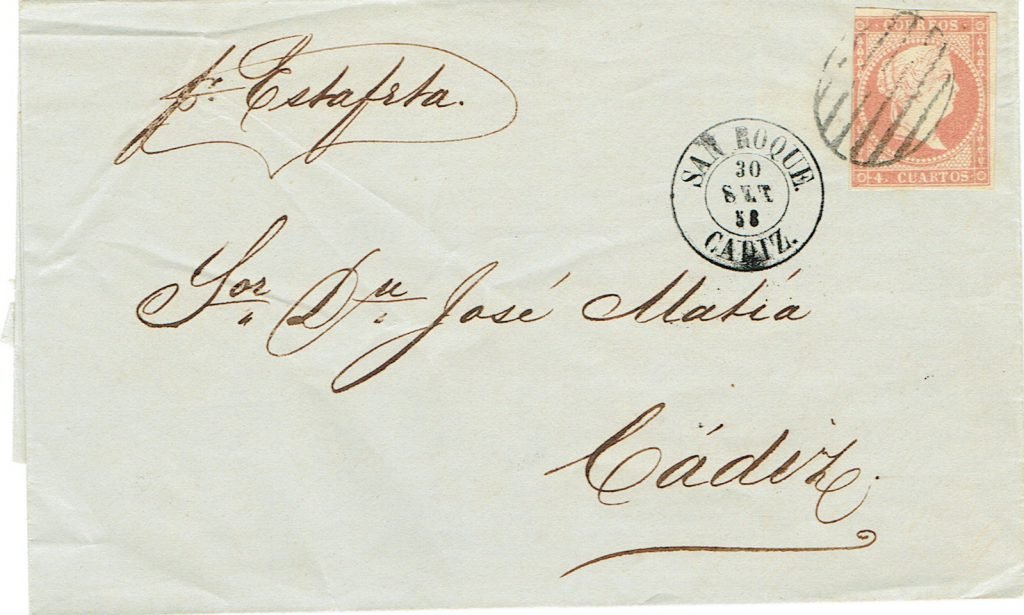 pr. Estafeta.
CORREOS
4. CUARTOS
SAN ROQUE.
30
SET
58
CADIZ.
Sor Dn José Matía
Cádiz.